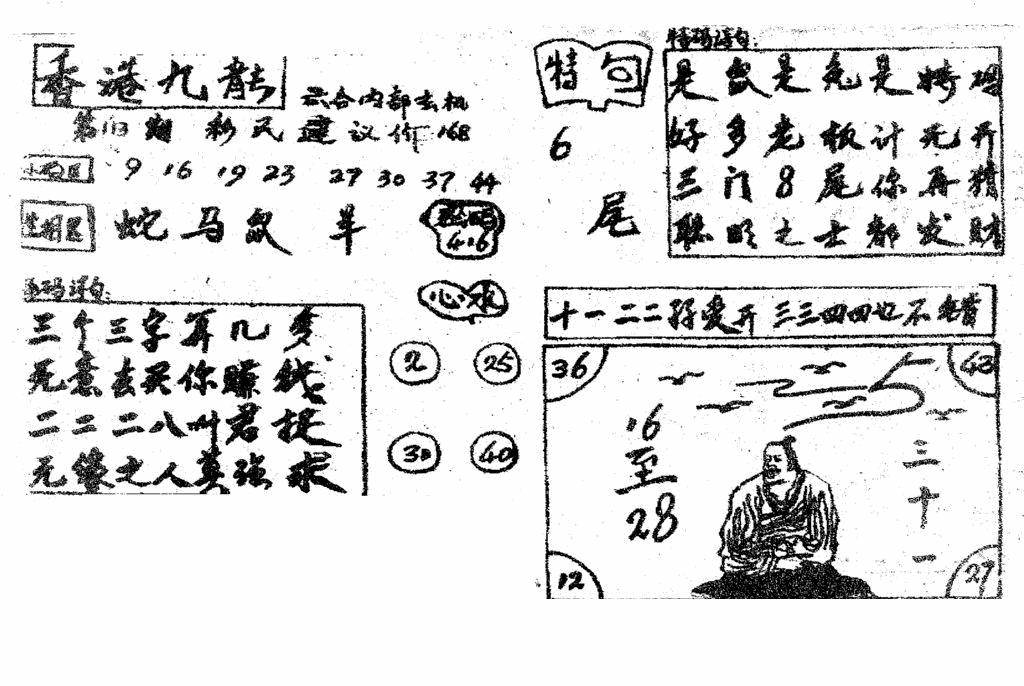 香港九龍
六合内部玄机
第113期 彩民建议价168
小码区 9 16 19 23 27 30 37 44
生肖区 蛇 马 鼠 羊
406
心水
2 25
30 40
三个三字算几多
无意去买你赚钱
二二二八叫君捉
无缘之人莫强求
特句
6
尾
特码诗句:
是鼠是兔是特码
好多老板计无开
三门8尾你再猜
聪明之士都发财
十一二二孖爱开 三三四四也不错
36 43
16至28
三十一
12 27